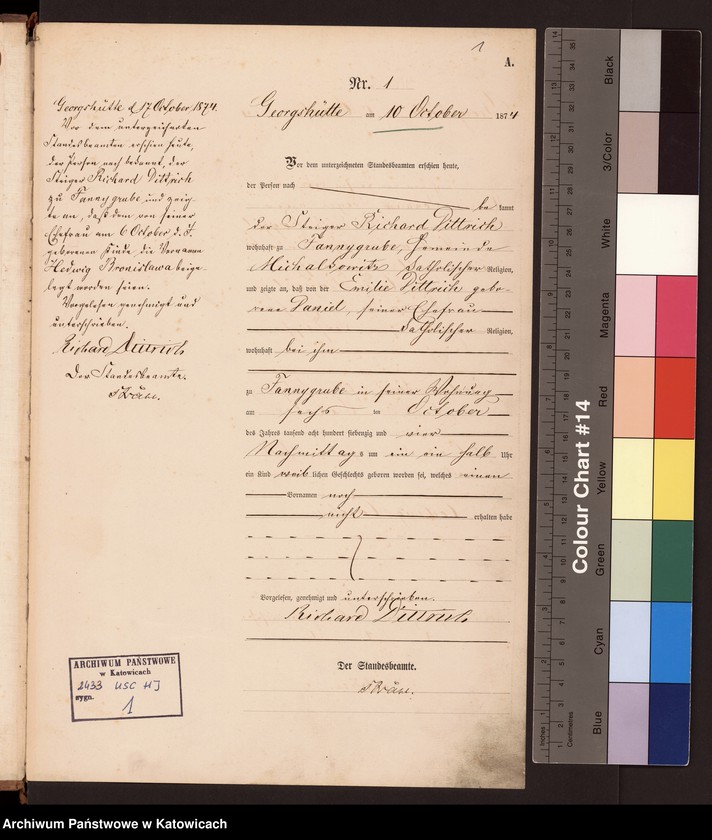 1
A.
Nr. 1
Georgshütte am 10 October 1874
Vor dem unterzeichneten Standesbeamten erschien heute,
der Person nach
be kannt
der Steiger Richard Dittrich
wohnhaft zu Fannygrube, Gemeinde
Michalkowitz katholischer Religion,
und zeigte an, daß von der Emilie Dittrich gebo-
rene Daniel, seiner Ehefrau
katholischer Religion,
wohnhaft bei ihm
zu Fannygrube in seiner Wohnung
am sechs ten October
des Jahres tausend acht hundert siebenzig und vier
Nachmittags um ein ein halb Uhr
ein Kind weib lichen Geschlechts geboren worden sei, welches einen
Vornamen noch
nicht erhalten habe
Vorgelesen, genehmigt und unterschrieben.
Richard Dittrich
Der Standesbeamte.
Georgshütte d 17 October 1874.
Vor dem unterzeichneten
Standesbeamten erschien heute,
der Person nach bekannt, der
Steiger Richard Dittrich
zu Fannygrube und zeig-
te an, daß dem von seiner
Ehefrau am 6 October d. J.
geborenen Kinde, die Vornamen
Hedwig Bronislawa beige
legt worden seien.
Vorgelesen genehmigt und
unterschrieben.
Richard Dittrich
Der Standesbeamte.
ARCHIWUM PAŃSTWOWE
w Katowicach
2433 USC HJ
sygn. 1
Colour Chart #14
Black
3/Color
White
Magenta
Red
Yellow
Green
Cyan
Blue
Inches
Centimetres
Archiwum Państwowe w Katowicach